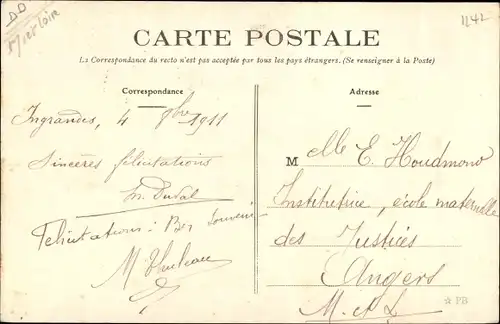 1242
CARTE POSTALE
La Correspondance du recto n'est pas acceptée par tous les pays étrangers. (Se renseigner à la Poste)
Correspondance
Ingrandes, 4 9bre 1911
Sincères félicitations
M. Duval
Félicitations : Bon Souvenir
M Thuleau
Adresse
Melle E. Houdmond
Institutrice, école maternelle
des Justices
Angers
M. et L.
PB